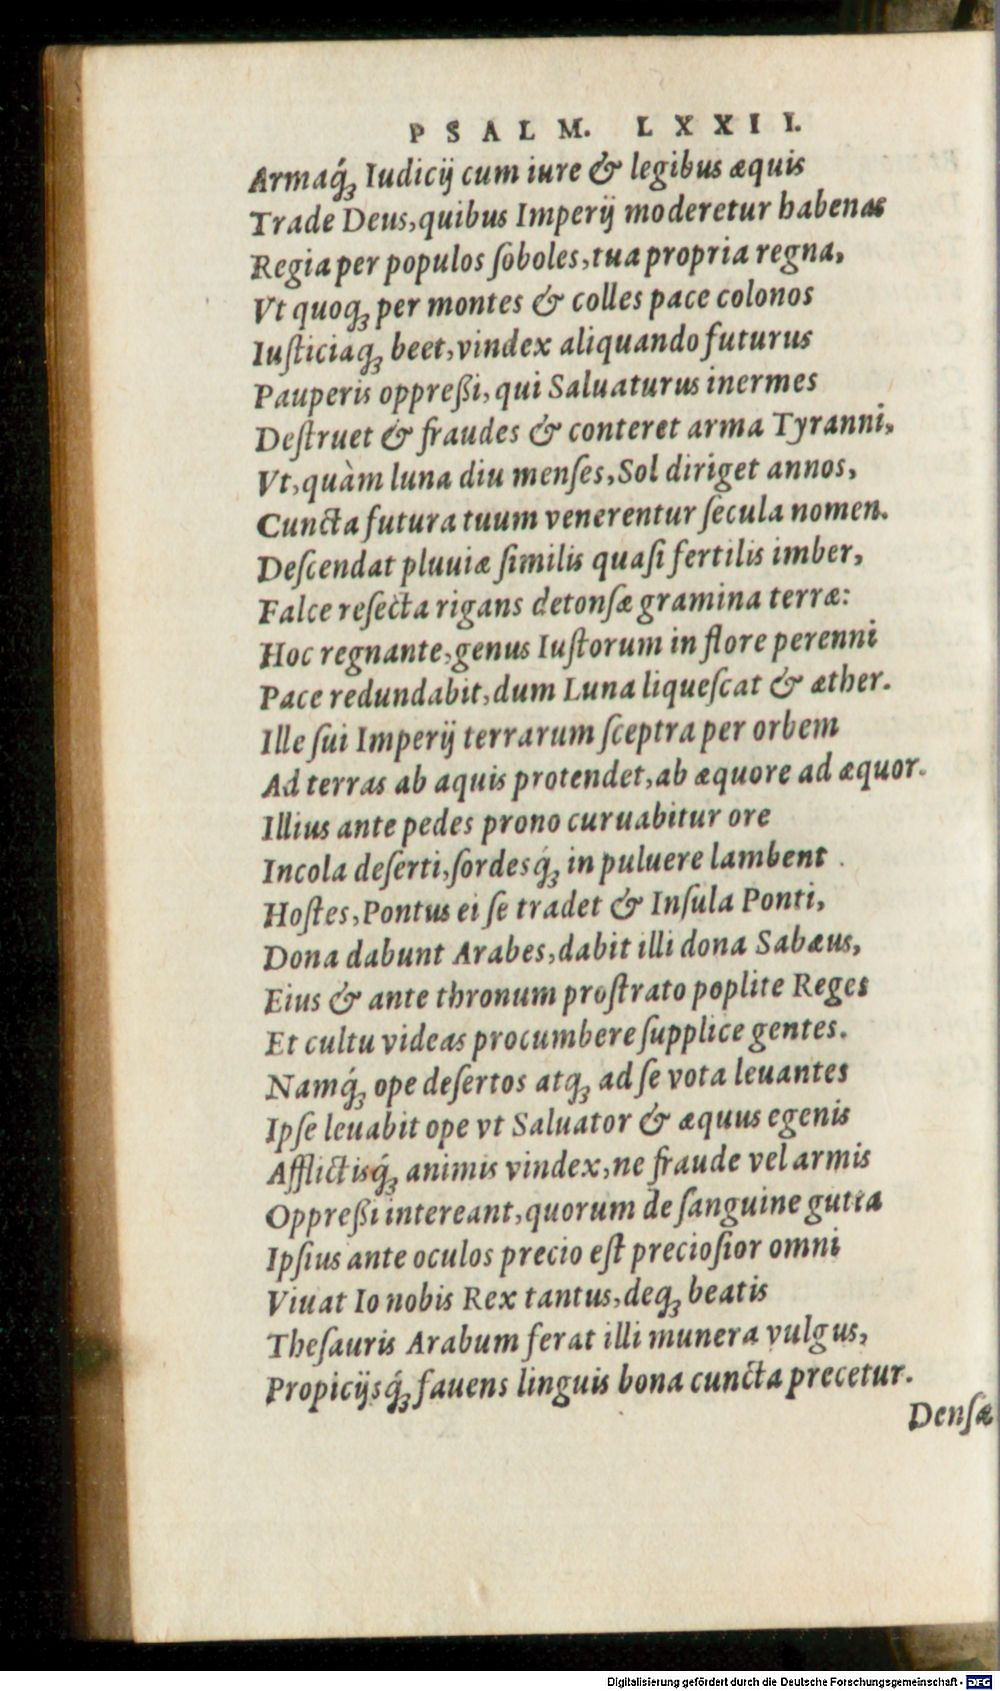 PSALM. LXXII.
Armaq́ꝫ Iudicij cum iure & legibus æquis
Trade Deus, quibus Imperij moderetur habenas
Regia per populos ſoboles, tua propria regna,
Vt quoqꝫ per montes & colles pace colonos
Iuſticiaqꝫ beet, vindex aliquando futurus
Pauperis oppreßi, qui Saluaturus inermes
Deſtruet & fraudes & conteret arma Tyranni,
Vt, quàm luna diu menſes, Sol diriget annos,
Cuncta futura tuum venerentur ſecula nomen.
Deſcendat pluuiæ ſimilis quaſi fertilis imber,
Falce reſecta rigans detonſæ gramina terræ:
Hoc regnante, genus Iuſtorum in flore perenni
Pace redundabit, dum Luna liqueſcat & æther.
Ille ſui Imperij terrarum ſceptra per orbem
Ad terras ab aquis protendet, ab æquore ad æquor.
Illius ante pedes prono curuabitur ore
Incola deſerti, ſordesq́ꝫ in puluere lambent
Hoſtes, Pontus ei ſe tradet & Inſula Ponti,
Dona dabunt Arabes, dabit illi dona Sabæus,
Eius & ante thronum proſtrato poplite Reges
Et cultu videas procumbere ſupplice gentes.
Namq́ꝫ ope deſertos atqꝫ ad ſe vota leuantes
Ipſe leuabit ope vt Saluator & æquus egenis
Afflictisq́ꝫ animis vindex, ne fraude vel armis
Oppreßi intereant, quorum de ſanguine gutta
Ipſius ante oculos precio eſt precioſior omni
Viuat Io nobis Rex tantus, deqꝫ beatis
Theſauris Arabum ferat illi munera vulgus,
Propicijsq́ꝫ fauens linguis bona cuncta precetur.
Denſæ
Digitalisierung gefördert durch die Deutsche Forschungsgemeinschaft - DFG